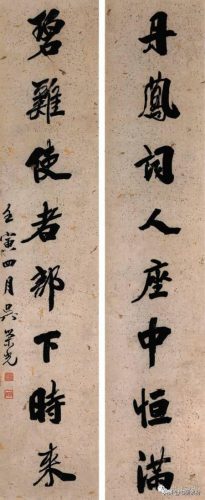 丹鳳詞人座中恒滿
碧雞使者部下時來
壬寅四月吳榮光